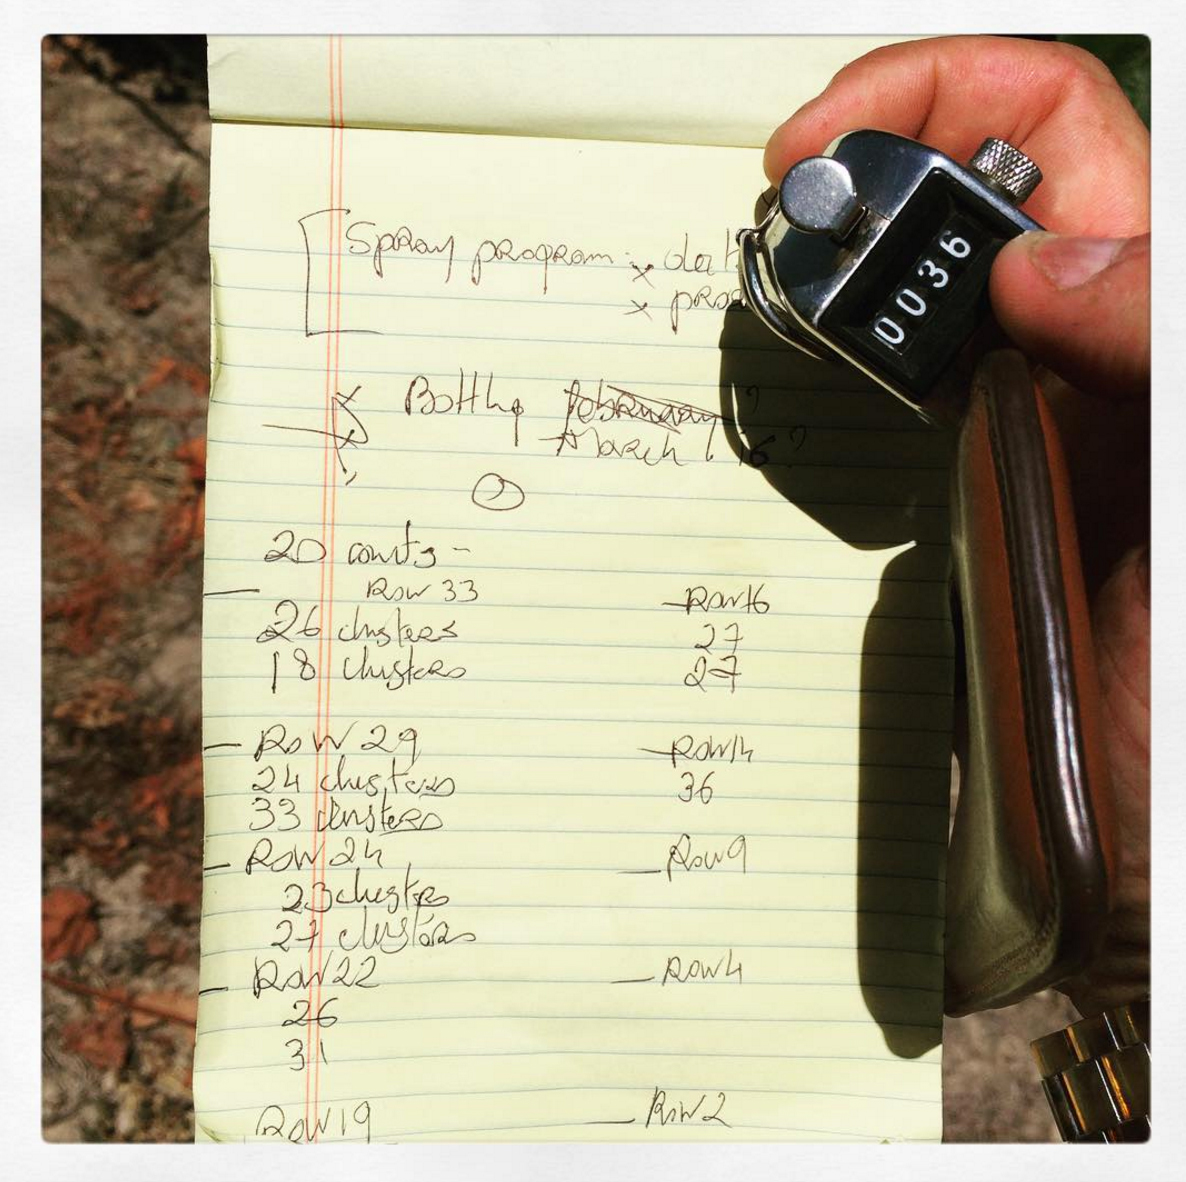 Spray program : x dat
x prog
x Bottling february ?
x March 16?
20 counts -
Row 33
26 clusters
18 clusters
- Row 29
24 clusters
33 clusters
- Row 24
23 clusters
27 clusters
- Row 22
26
31
Row 19
- Row 16
27
27
- Row 14
36
- Row 9
- Row 4
- Row 2
0036